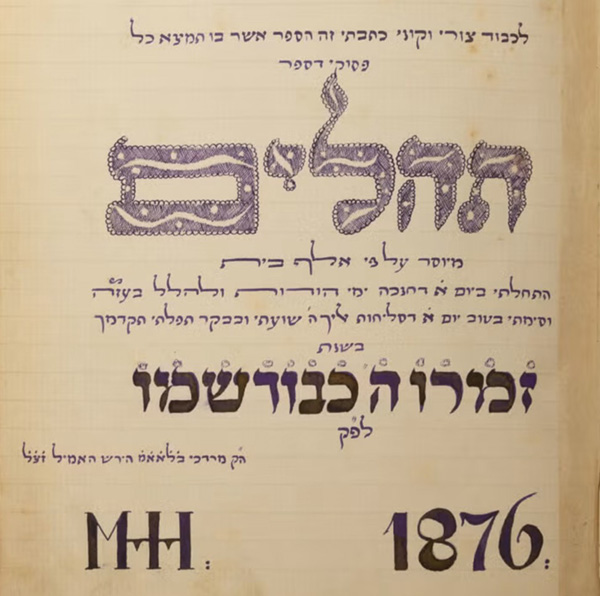 לכבוד צורי וקוני כתבתי זה הספר אשר בו תמצא כל
פסוקי דספר
תהלים
מיוסד על פי אלף בית
התחלתי ביום א דחנוכה ימי הודות ולהלל
וסימתי בטוב יום א דסליחות אליך ה' שועתי ובבקר תפלתי תקדמך
בשנת
זמירו ה' כבוד שמו
לפק
הק מרדכי הירש האמיל זצל
MHH:
1876: